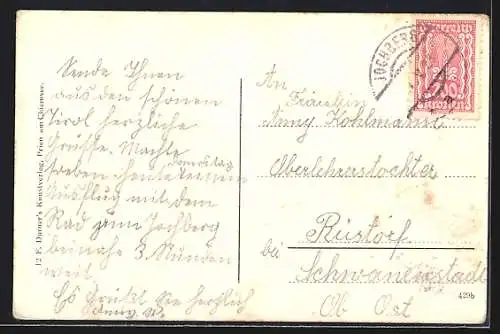 Sende Ihnen
aus den schönen
Tirol herzliche
Grüsse. Machte
soeben heute
Samstag
Ausflug mit dem
Rad zum Jochberg
beinahe 3 Stunden
weit.
Es grüßt Sie herzlich
12 F. Kunstverlag, Prien am Chiemsee.
JOCHBERG
An
Fräulein
Anny Kohlmann
Oberlehrerstochter
Rüstorf
bei Schwanenstadt
Ob Öst
429b